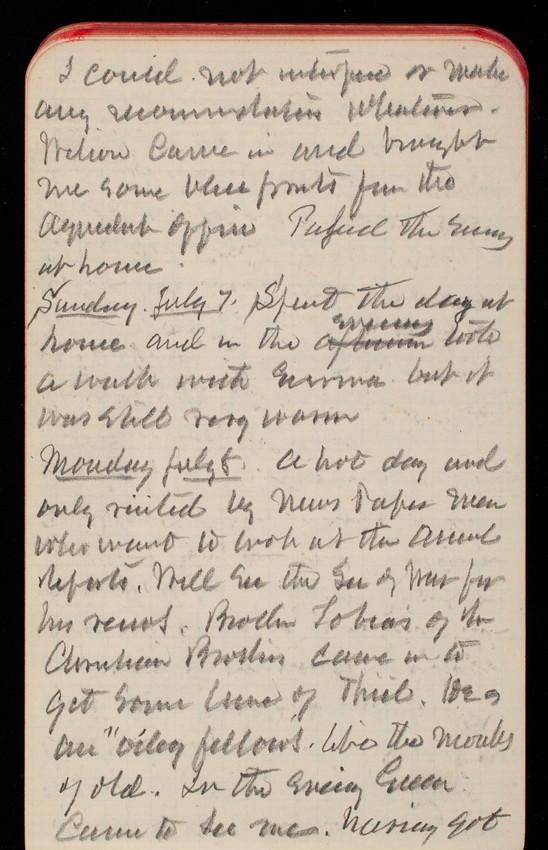 I could not interfere or make
any recommendation whatever.
Wilson came in and brought
me some blue prints from the
Aqueduct office Passed the evening
at home.
Sunday. July 7. Spent the day at
home and in the afternoon evening took
a walk with Gurma but it
was still very warm
Monday July 8. A hot day and
only visited by News Paper men
who want to look at the annual
reports. Will see the Sec of War for
his views. Brother Tobias of the
Christian Brothers came in to
get some lumps of . He is
an "oiley fellow". like the monks
of old. In the evening Green
came to see me. having got